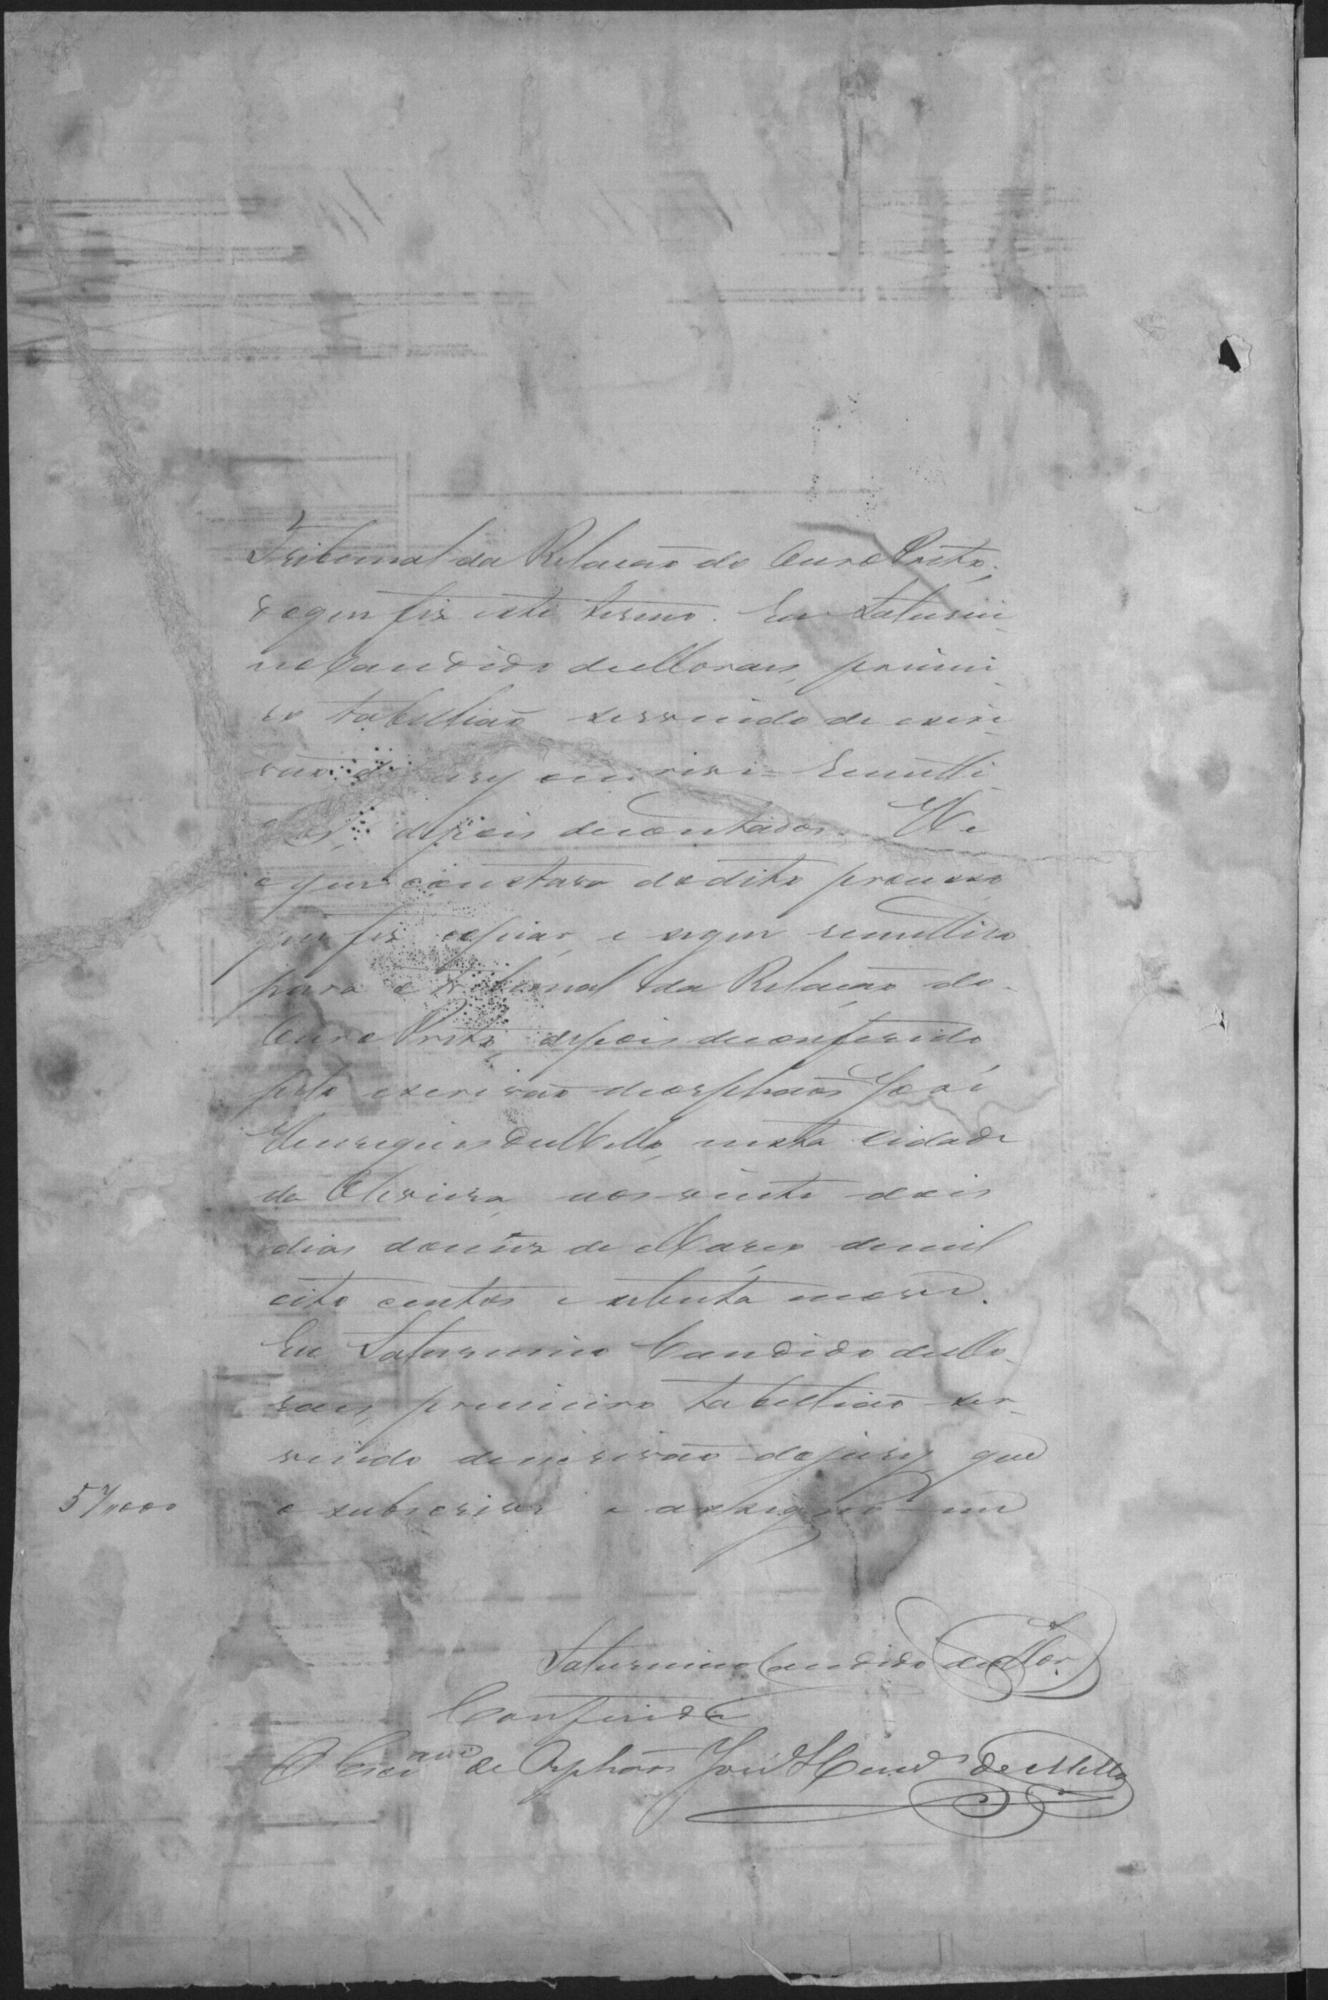 Tribunal da Relação do Ouro Preto,
do que fiz este termo. Eu Saturni-
no Candido de Moraes, primei-
ro tabellião servindo de escri-
vão do jury escrivi = Remetti-
dos, depois de contados. He
o que constava do dito processo
que fiz copiar, e segue remettido
para o Tribunal da Relação do
Ouro Preto, depois de conferido
pelo escrivão de orphãos José
Henriques de Mello, nesta cidade
da Oliveira, aos vinte dois
dias do mez de Março de mil
oito centos e setenta nove.
Eu Saturnino Candido de Mo-
raes, primeiro tabellião ser-
vindo de escrivão do jury que
o subscrivi e assigno em
Saturnino Candido de Mor.
Conferido
O Escrivão de Orphãos José Henrs de Mello